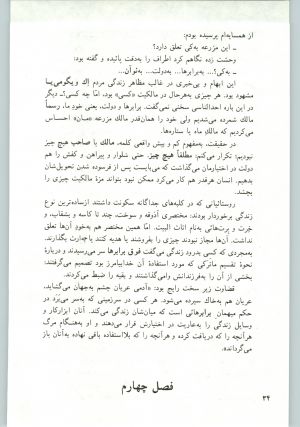 از همسایه‌ام پرسیده بودم:
ـ این مزرعه به‌کی تعلق دارد؟
وحشت زده نگاهم کرد اطراف را به‌دقت پائیده و گفته بود:
ـ به‌کی؟... به‌برابرها... به‌دولت... به‌توآن...
این ابهام و بی‌خبری در باقی مظاهر زندگی مردم اِك و یگومی‌یا
مشهود بود. هر چیزی به‌هرحال در مالکیت «کسی» بود. امّا چه کسی؟ـ دیگر
در این باره احدالناسی سخنی نمی‌گفت. برابرها و دولت، یعنی خودِ ما، رسماً
مالك شمرده می‌شدیم ولی خود را همان‌قدر مالك مزرعه مان احساس
می‌کردیم که مالكِ ماه یا ستاره‌ها.
در حقیقت، به‌مفهوم کم و بیش واقعی کلمه، مالك یا صاحب هیچ چیز
نبودیم؛ تکرار می‌کنم: مطلقاً هیچ چیز. حتی شلوار و پیراهن و کفش را هم
دولت در اختیارمان می‌گذاشت که می‌بایست پس از فرسوده شدن تحویل‌شان
بدهیم. انسان هرقدر هم کار می‌کرد ممکن نبود بتواند مزهٔ مالکیت چیزی را
بچشد.
روستائیانی که در کلبه‌های جداگانه سکونت داشتند از ساده‌ترین نوع
زندگی برخوردار بودند: مختصری آذوقه و سوخت، چند تا کاسه و بشقاب، و
خرت و پرت‌هائی به‌نام اثاث البیت. امّا همین مختصر هم به‌خود آن‌ها تعلق
نداشت. آن‌ها مجاز نبودند چیزی را بفروشند یا هدیه کنند یا به‌ارث بگذارند.
به‌مجردی که کسی بدرود زندگی می‌گفت فوق برابرها سر می‌رسیدند و دربارهٔ
نحوهٔ تقسیم ماترکی که مورد استفادهٔ آن خدابیامرز بود تصمیم می‌گرفتند؛
بخشی از آن را به‌فرزندانش وامی‌گذاشتند و بقیه را ضبط می‌کردند.
قضاوت زیر سخت رایج بود: «آدمی عریان چشم به‌جهان می‌گشاید،
عریان هم به‌خاك سپرده می‌شود. هر کسی در سرزمینی که به‌سر می‌برد در
حکم میهمان برابرهائی است که میان‌شان زندگی می‌کند. آنان ابزارکار و
وسایل زندگی را به‌عاریت در اختیارش قرار می‌دهند و او به‌هنگام مرگ
هرآنچه را که دریافت کرده و هرآنچه را که بلااستفاده باقی نهاده به‌آنان باز
می‌گرداند.
فصل چهارم
۳۴